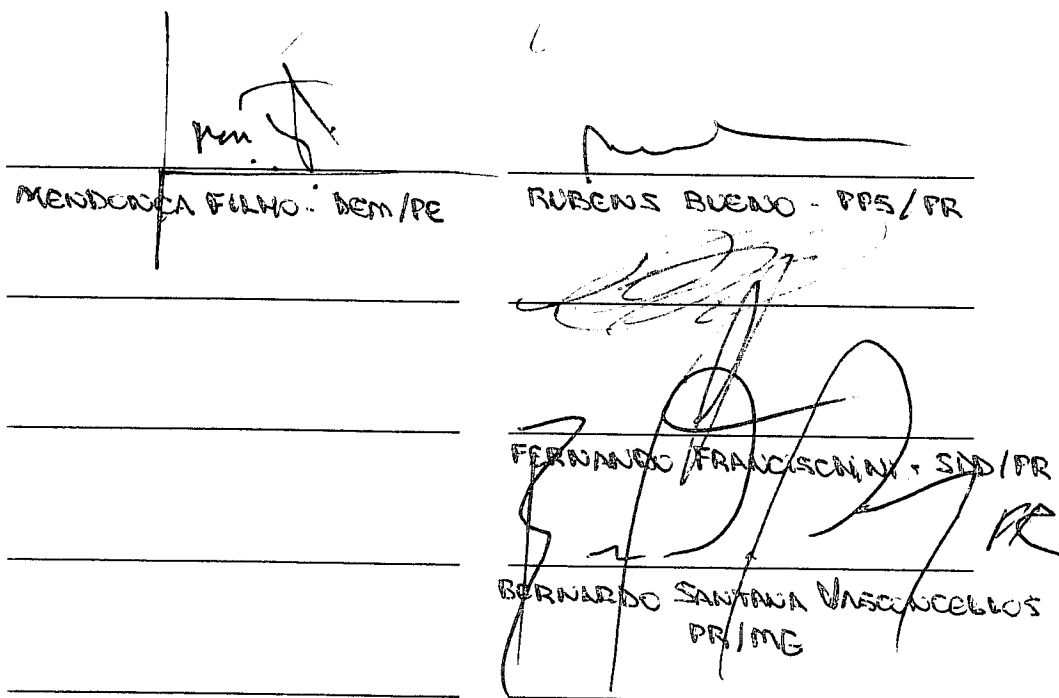 MENDONÇA FILHO - DEM/PE
RUBENS BUENO - PPS/PR
FERNANDO FRANCISCHINI - SDD/PR
PR
BERNARDO SANTANA VASCONCELLOS
PR/MG